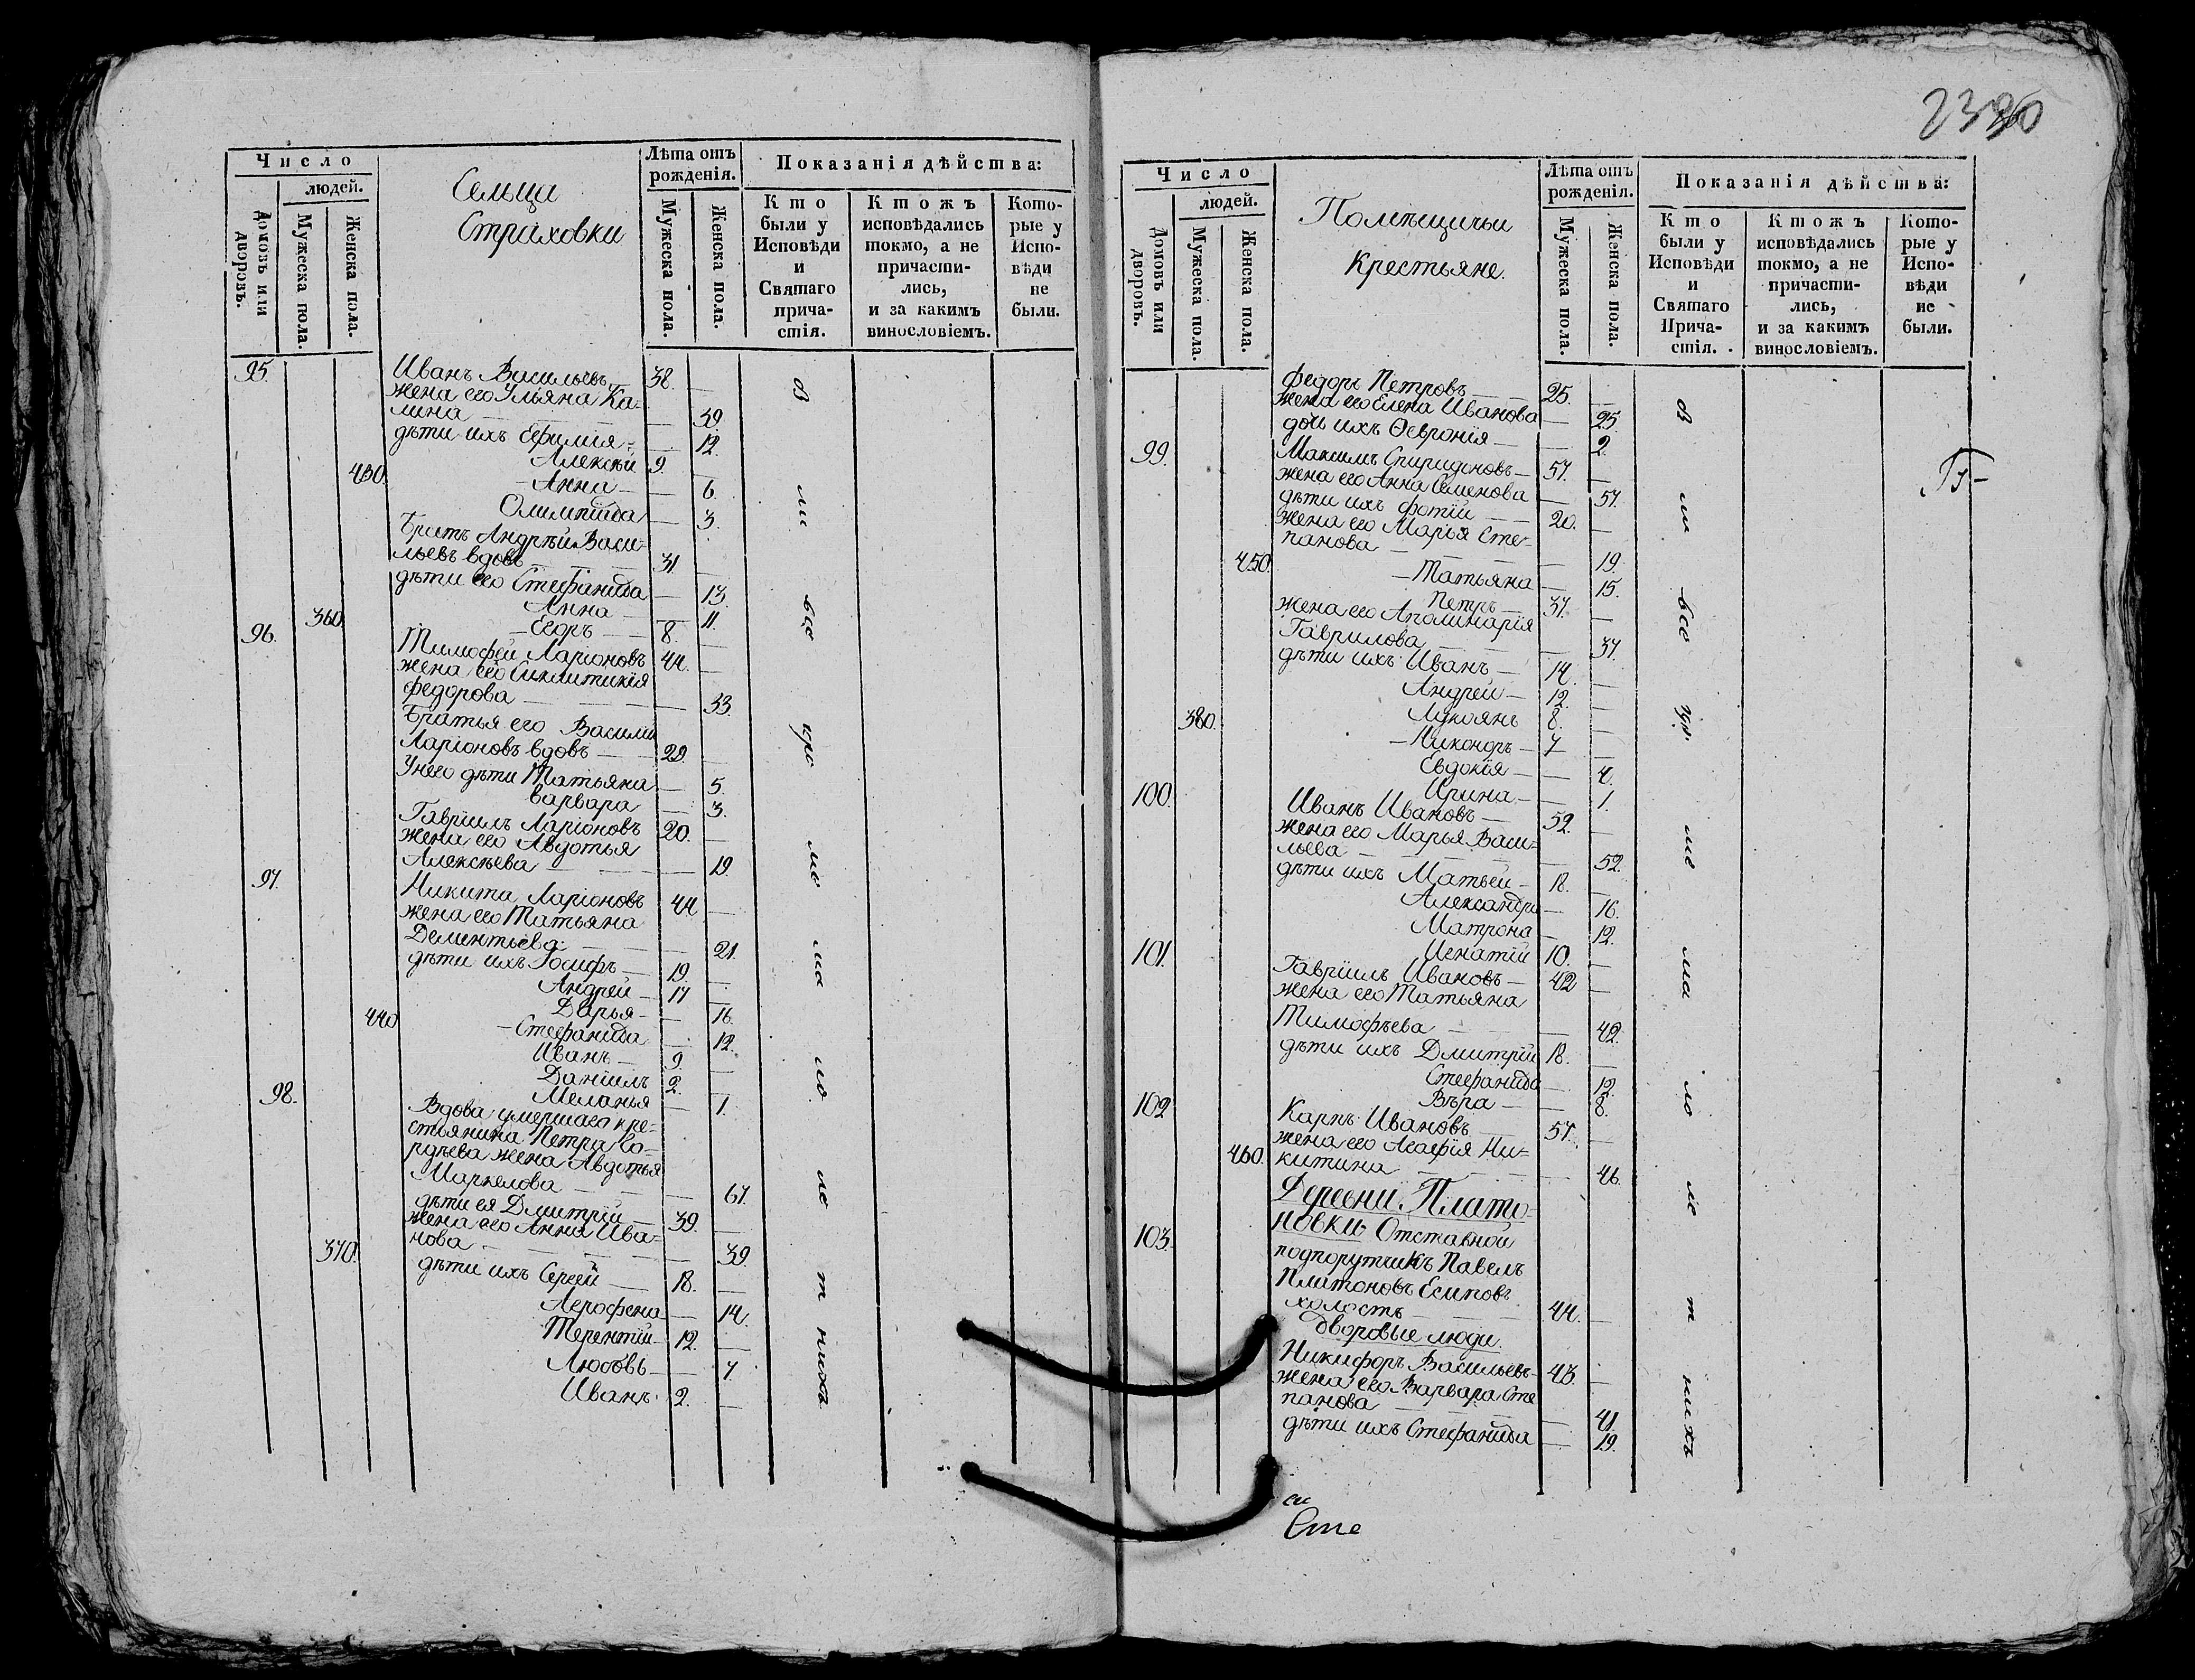 2380
Число
людей.
Домовъ или дворовъ.
Мужеска пола.
Женска пола.
Сельца
Страховки
Лѣта отъ рожденія.
Мужеска пола.
Женска пола.
Показанія дѣйства:
Кто были у Исповѣди и Святаго причастія.
Ктожъ исповѣдались токмо, а не причастились, и за какимъ винословіемъ.
Которые у Исповѣди не были.
95. Иванъ Васильевъ 38.
жена его Ульяна Ка-
лина 39.
дѣти ихъ Ефимія 12.
Алексѣй 9.
430. Анна 6.
Олимпіада 3.
Братъ Андрѣй Васи-
льевъ вдовъ 31.
дѣти его Стефанида 13.
Анна 11.
360. Егоръ 8.
96. Тимофей Ларіоновъ 44.
жена его Синклитикія
Федорова 33.
Братья его Василій
Ларіоновъ вдовъ 29.
У него дѣти Татьяна 5.
Варвара 3.
Гавріилъ Ларіоновъ 20.
жена его Авдотья
Алексѣева 19.
97. Никита Ларіоновъ 44
жена его Татьяна
Дементьева 21.
дѣти ихъ Іосифъ 19.
Андрей 17
Дарья 16.
440 Стефанида 12.
Иванъ 9.
Даніилъ 2.
Меланья 1.
98. Вдова умершаго кре-
стьянина Петра Го-
рдѣева жена Авдотья
Маркелова 67.
дѣти ея Дмитрій 39.
жена его Анна Ива-
нова 39.
370. дѣти ихъ Сергей 18.
Агрофена 14.
Терентій 12.
Любовь 7.
Иванъ 2.
Число
людей.
Домовъ или дворовъ.
Мужеска пола.
Женска пола.
Помѣщичьи
Крестьяне.
Лѣта отъ рожденія.
Мужеска пола.
Женска пола.
Показанія дѣйства:
Кто были у Исповѣди и Святаго Причастія.
Ктожъ исповѣдались токмо, а не причастились, и за какимъ винословіемъ.
Которые у Исповѣди не были.
Федоръ Петровъ 25.
жена его Елена Иванова 25.
дочь ихъ Ѳевронія 2.
99. Максимъ Спиридоновъ 57.
жена его Анна Семенова 57.
дѣти ихъ Фотій 20.
жена его Марья Сте-
панова 19.
450. Татьяна 15.
Петръ 37.
жена его Аполинарія
Гаврилова 37.
дѣти ихъ Иванъ 14.
Андрей 12.
380. Лукоянъ 8.
Никоноръ 7
Евдокія 4.
Ирина 1.
100. Иванъ Ивановъ 52.
жена его Марья Васи-
льева 52.
дѣти ихъ Матвей 18.
Александра 16.
Матрона 12.
Игнатій 10.
101. Гавріилъ Ивановъ 42
жена его Татьяна
Тимофѣева 42.
дѣти ихъ Дмитрій 18.
Стефанида 12.
Вѣра 8.
102 Карпъ Ивановъ 57.
жена его Агафія Ни-
460. китина 46.
Деревни Плато-
новки Отставной
103. подпорутчикъ Павелъ
Платоновъ Есиповъ
холостъ 44.
Дворовые люди.
Никифоръ Васильевъ 43.
жена его Варвара Сте
панова 41.
дѣти ихъ Стефанида 19.
Сте